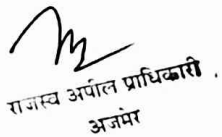 राजस्व अपील प्राधिकारी.
अजमेर